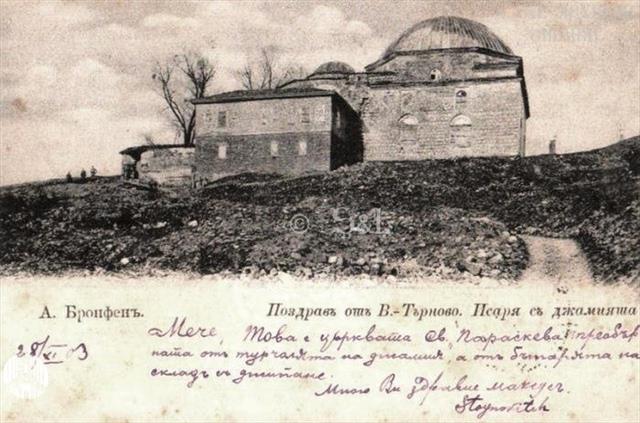 А. Бронфенъ.
Поздравъ отъ В.-Търново. Псаря съ джамията
28/XI 03
Мече, Това е църквата Св. Параскева преобър
ната отъ турчалята на джамия, а отъ българята на
складъ съ джепане.
Много Ви здравие
Stoynovitch